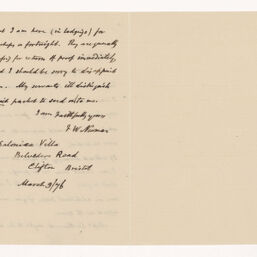 I am here (in lodgings) for
a fortnight. They are generally
for return of proof immediately,
I should be sorry to disappoint
My servants will distinguish
packet to send unto me.
I am faithfully yours
F. W. Newman
Villa
Belvedere Road
Clifton Bristol
March 3/76